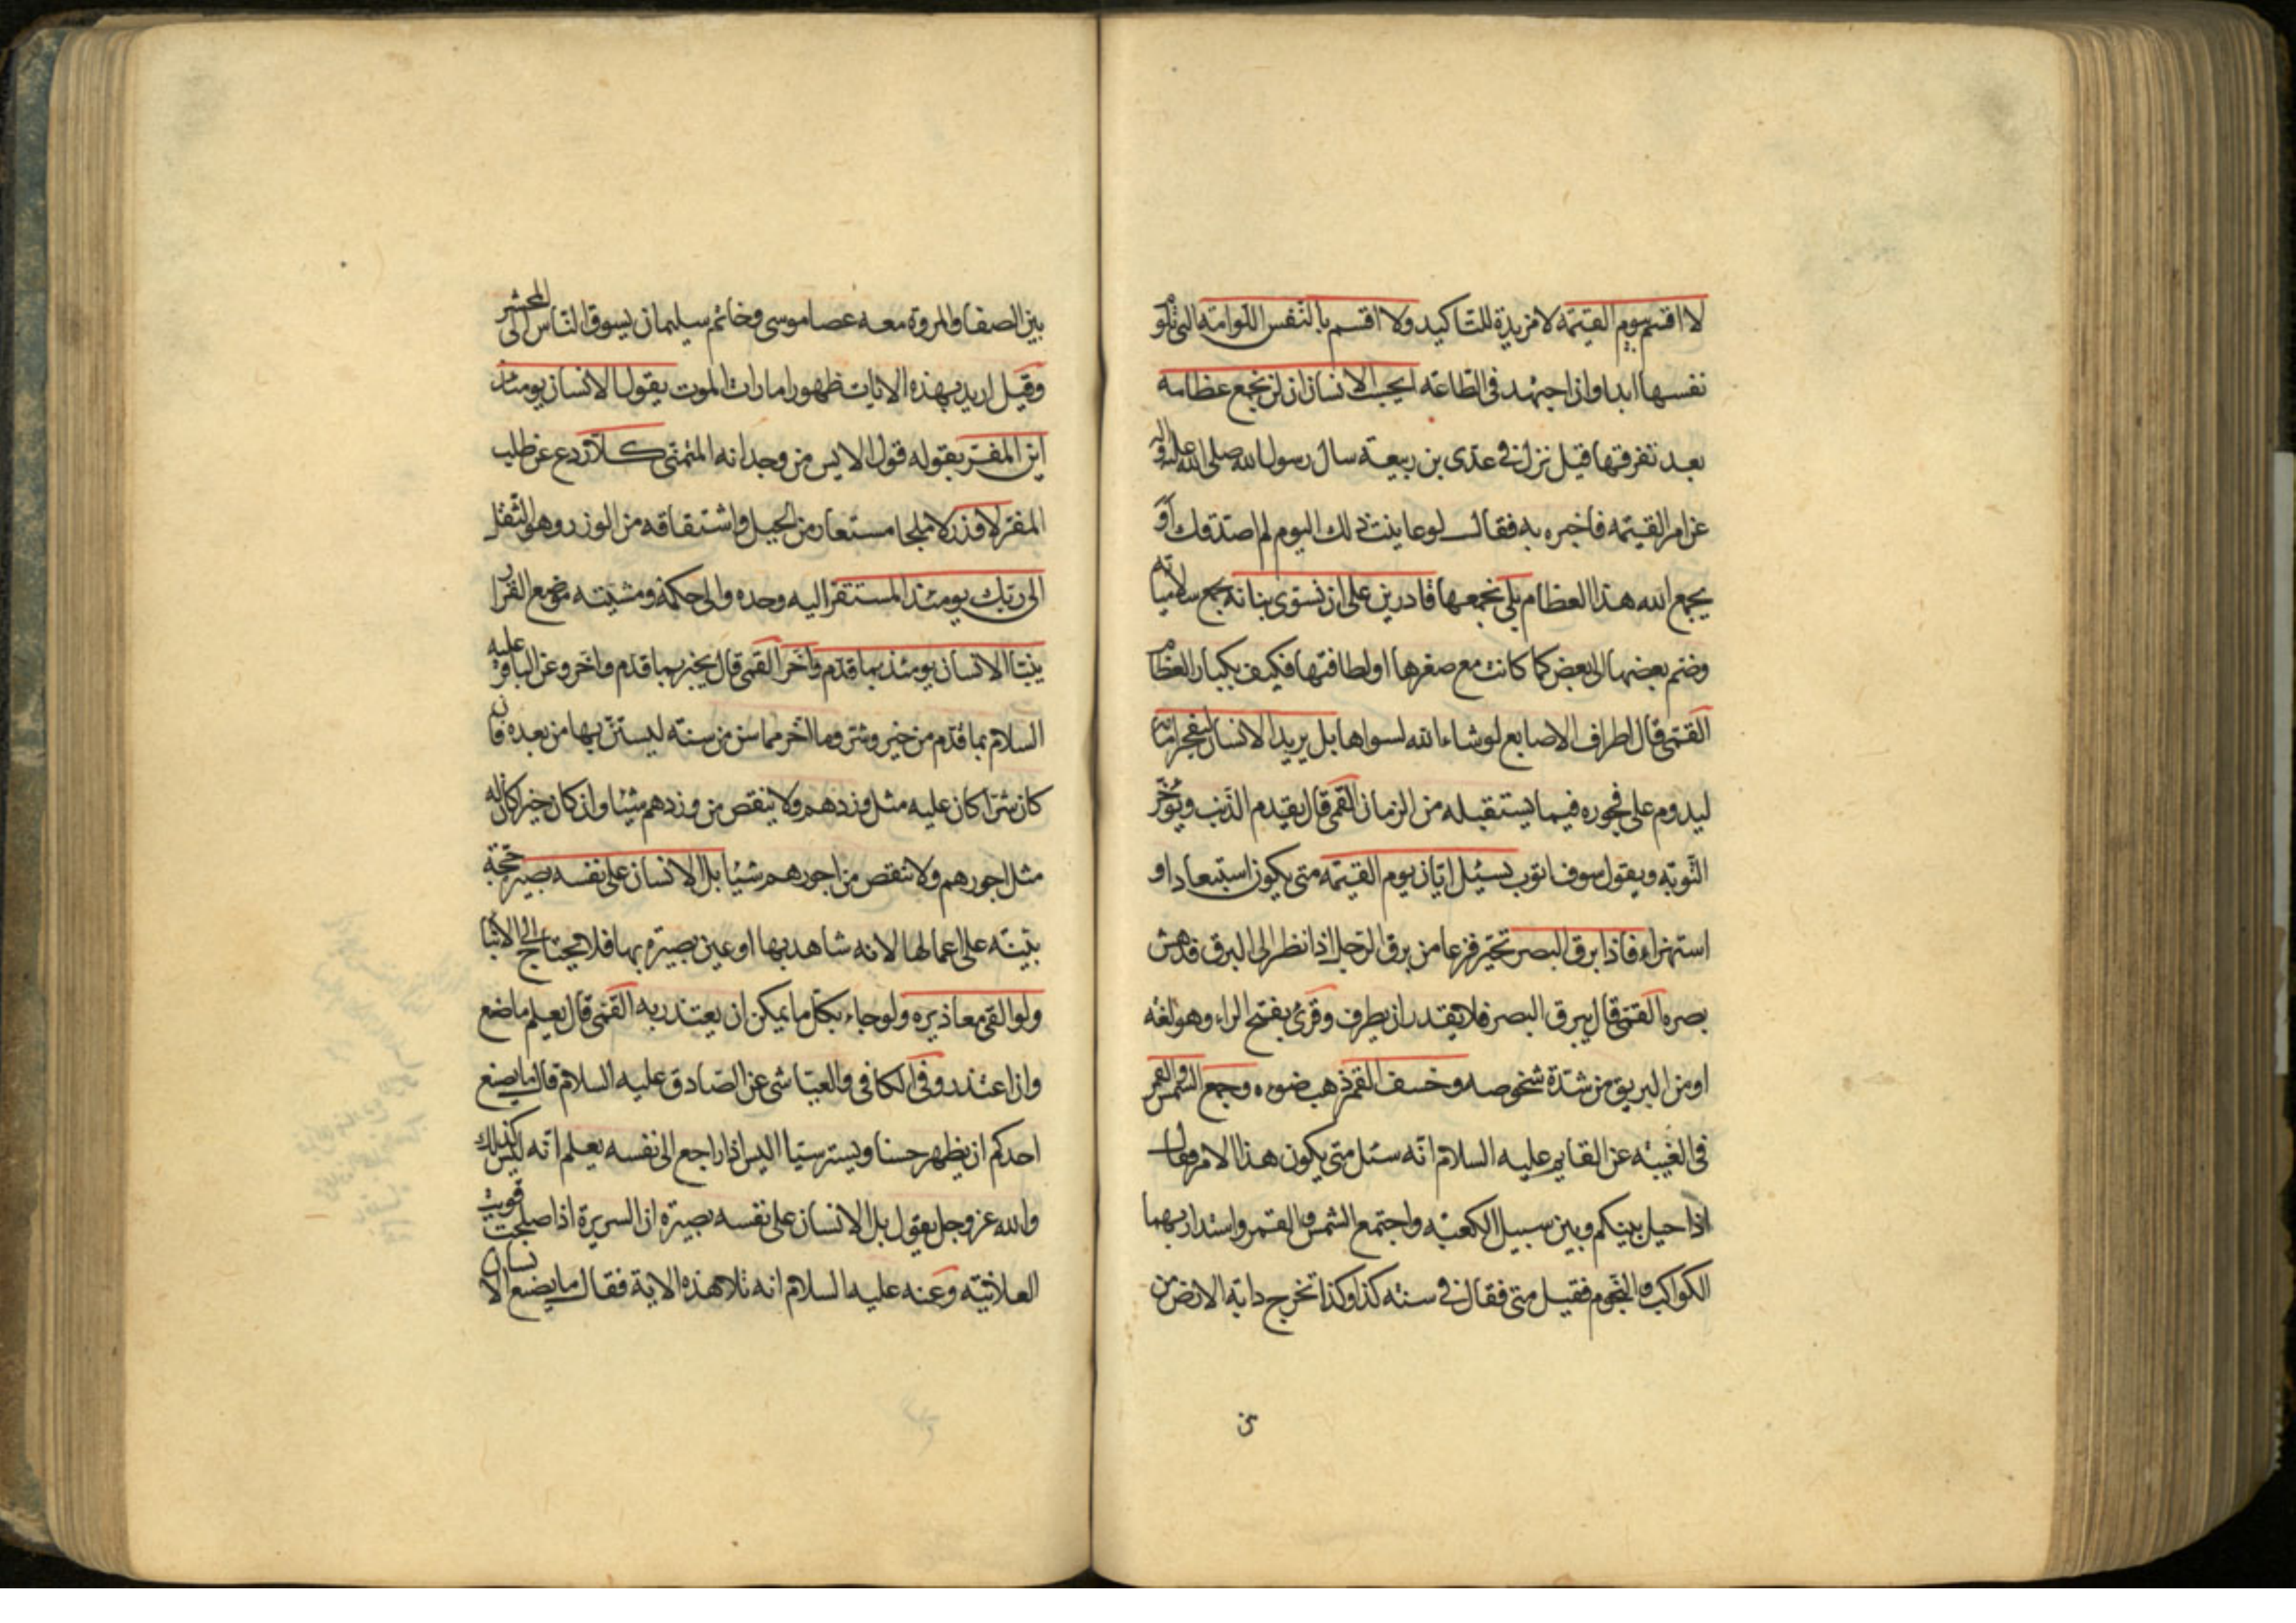 لا اقسم بيوم القيمة لا مزيدة للتاكيد ولا اقسم بالنفس اللوامة التى تلوم
نفسها ابدا وان اجتهد فى الطاعة ايحسب الانسان ان لن نجمع عظامه
بعد تفرقها قيل نزل فى عدى بن ربيعة سال رسول الله صلى الله عليه واله
عن امر القيمة فاخبره به فقال لو عاينت ذلك اليوم لم اصدقك او
يجمع الله هذا العظام بلى نجمعها قادرين على ان نسوى بنانه بجمع سلامياته
وضم بعضها الى بعض كما كانت مع صغرها او لطافتها فكيف بكبار العظام
القمى قال اطراف الاصابع لو شاء الله لسواها بل يريد الانسان ليفجر امامه
ليدوم على فجوره فيما يستقبله من الزمان القمى قال يقدم الذنب ويؤخر
التوبة ويقول سوف اتوب يسئل ايان يوم القيمة متى يكون استبعادا او
استهزاء فاذا برق البصر تحير فزعا من برق الرجل اذا نظر الى البرق فدهش
بصره القمى قال يبرق البصر فلا يقدر ان يطرف وقرئ بفتح الراء وهو لغة
او من البريق من شدة شخوصه وخسف القمر ذهب ضوءه وجمع الشمس والقمر
فى الغيبة عن القايم عليه السلام انه سئل متى يكون هذا الامر فقال
اذا حيل بينكم وبين سبيل الكعبة واجتمع الشمس والقمر واستدار بهما
الكواكب والنجوم فقيل متى فقال فى سنة كذا وكذا تخرج دابة الارض من
بين الصفا والمروة معه عصا موسى وخاتم سليمان يسوق الناس الى المحشر
وقيل اريد بهذه الايات ظهور امارات الموت يقول الانسان يومئذ
اين المفر يقوله قول الايس من وجدانه المتمنى كلا ردع عن طلب
المفر لا وزر لا ملجا مستعار من الجبل واشتقاقه من الوزر وهو الثقل
الى ربك يومئذ المستقر اليه وحده والى حكمه ومشيته موضع القرار
ينبئا الانسان يومئذ بما قدم واخر القمى قال يخبر بما قدم واخر وعن الباقر عليه
السلام بما قدم من خير وشر وما اخر مما سن من سنة ليستن بها من بعده فان
كان شرا كان عليه مثل وزرهم ولا ينقص من وزرهم شيئا وان كان خيرا كان له
مثل اجورهم ولا ينقص من اجورهم شيئا بل الانسان على نفسه بصيرة حجة
بينة على اعمالها لانه شاهد بها او عين بصيرة بها فلا يحتاج الى الانباء
ولو القى معاذيره ولو جاء بكل ما يمكن ان يعتذر به القمى قال يعلم ما صنع
وان اعتذر وفى الكافى والعياشى عن الصادق عليه السلام قال ما يصنع
احدكم ان يظهر حسنا ويستر سيئا اليس اذا راجع الى نفسه يعلم انه ليس كذلك
والله عز وجل يقول بل الانسان على نفسه بصيرة ان السريرة اذا صلحت قويت
العلانية وعنه عليه السلام انه تلا هذه الاية فقال ما يصنع الانسان